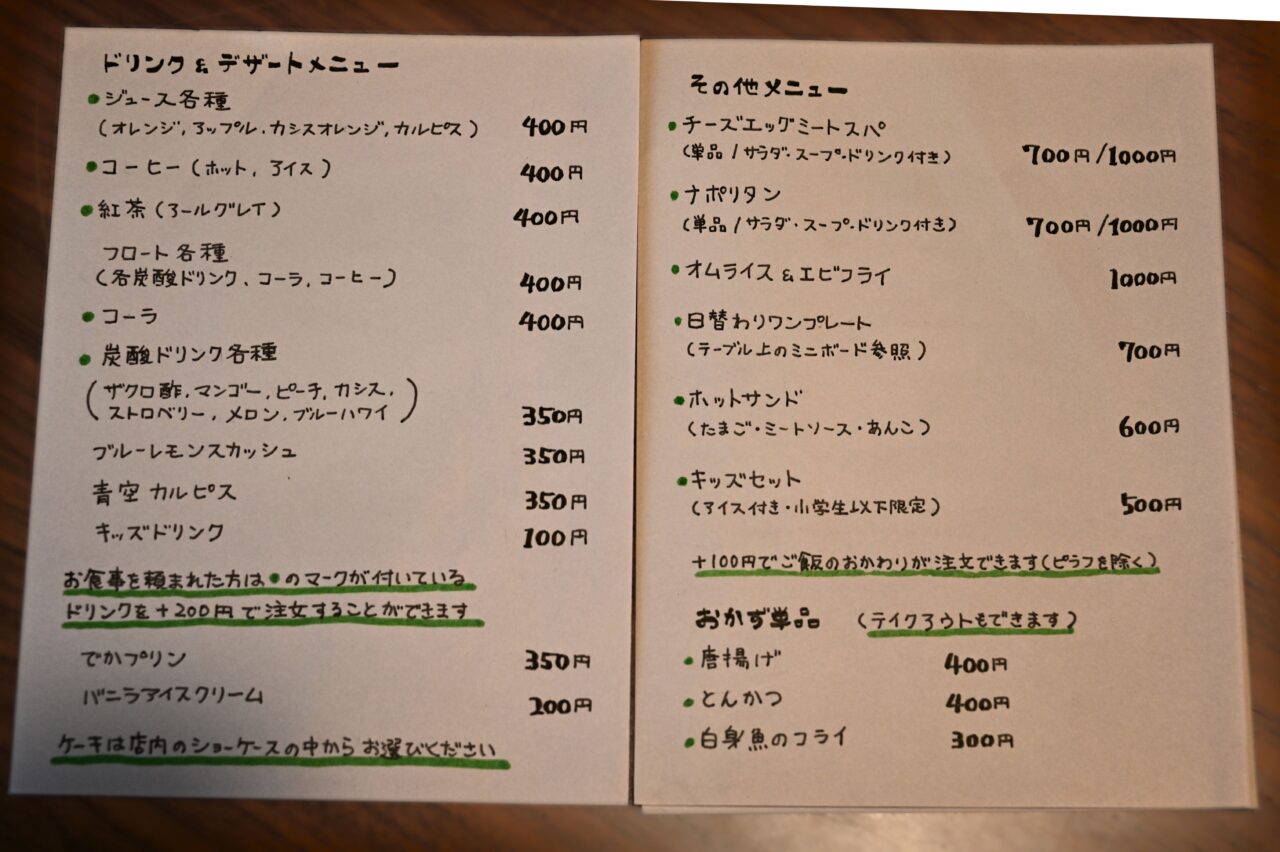 ドリンク & デザートメニュー
●ジュース各種
(オレンジ, アップル・カシスオレンジ, カルピス) 400円
●コーヒー (ホット, アイス) 400円
●紅茶 (アールグレイ) 400円
フロート各種
(各炭酸ドリンク、コーラ, コーヒー) 400円
●コーラ 400円
●炭酸ドリンク各種
(ザクロ酢, マンゴー, ピーチ, カシス,
ストロベリー, メロン, ブルーハワイ) 350円
ブルーレモンスカッシュ 350円
青空カルピス 350円
キッズドリンク 100円
お食事を頼まれた方は●のマークが付いている
ドリンクを+200円で注文することができます
でかプリン 350円
バニラアイスクリーム 200円
ケーキは店内のショーケースの中からお選びください
その他メニュー
●チーズエッグミートスパ
(単品 / サラダ・スープ・ドリンク付き) 700円/1000円
●ナポリタン
(単品 / サラダ・スープ・ドリンク付き) 700円/1000円
●オムライス & エビフライ 1000円
●日替わりワンプレート
(テーブル上のミニボード参照) 700円
●ホットサンド
(たまご・ミートソース・あんこ) 600円
●キッズセット
(アイス付き・小学生以下限定) 500円
+100円でご飯のおかわりが注文できます(ピラフを除く)
おかず単品 (テイクアウトもできます)
●唐揚げ 400円
●とんかつ 400円
●白身魚のフライ 300円